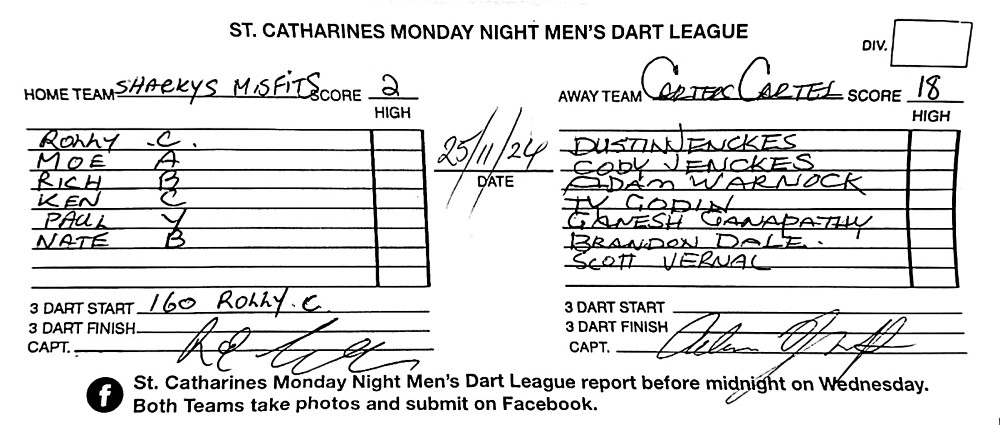 ST. CATHARINES MONDAY NIGHT MEN'S DART LEAGUE
DIV.
HOME TEAM SHARKYS MISFITS SCORE 2
HIGH
AWAY TEAM CARTERS CARTEL SCORE 18
HIGH
ROLLY C.
MOE A
RICH B
KEN C
PAUL Y
NATE B
25/11/24
DATE
DUSTIN JENCKES
CODY JENCKES
ADAM WARNOCK
TY GODIN
GANESH GANAPATHY
BRANDON DALE.
SCOTT VERNAL
3 DART START 160 ROLLY. C.
3 DART FINISH
CAPT.
3 DART START
3 DART FINISH
CAPT.
f St. Catharines Monday Night Men's Dart League report before midnight on Wednesday.
Both Teams take photos and submit on Facebook.